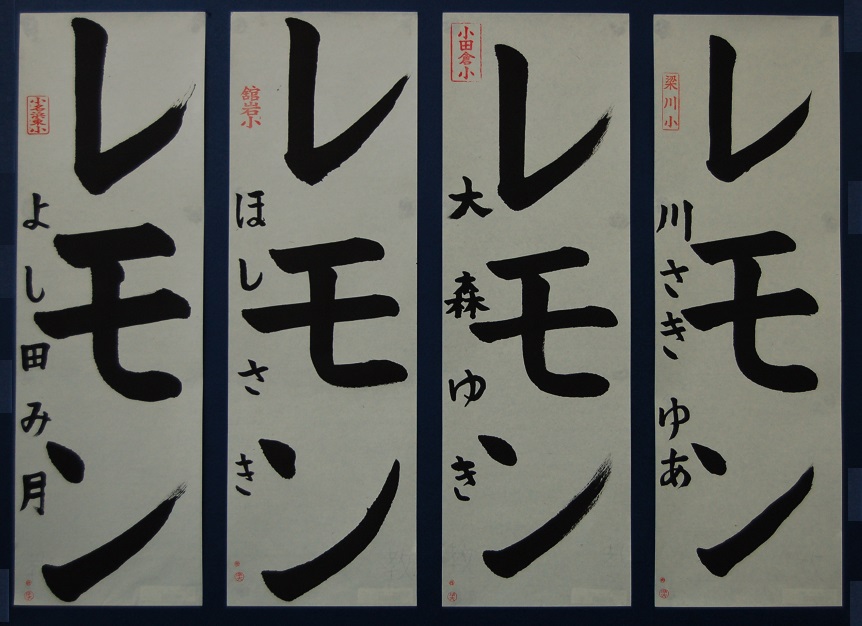 レモン
川さき ゆあ
梁川小
レモン
大森ゆき
小田倉小
レモン
ほしさき
舘岩小
レモン
よし田み月
小名浜東小